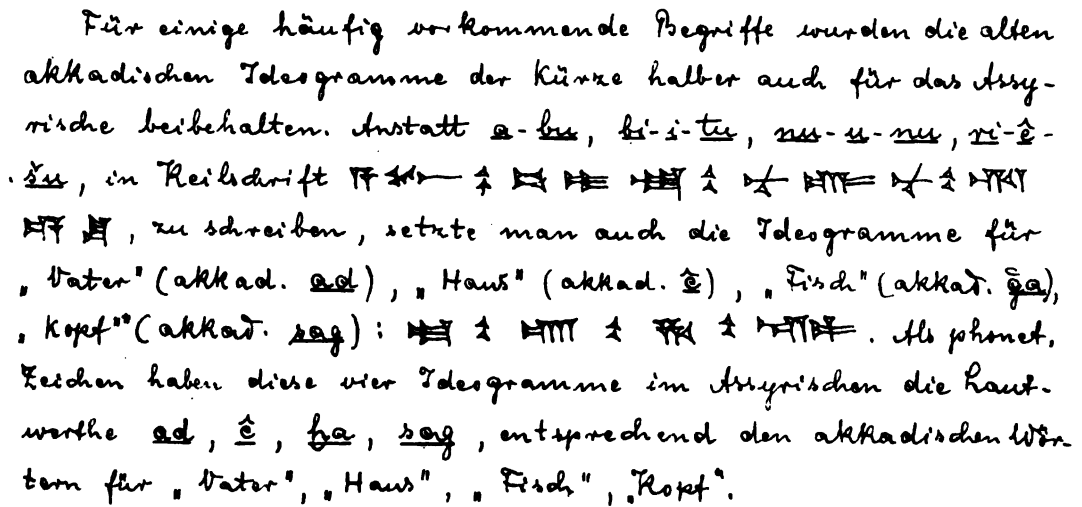 Für einige häufig vorkommende Begriffe wurden die alten
akkadischen Ideogramme der Kürze halber auch für das Assy-
rische beibehalten. Anstatt a-bu, bi-i-tu, nu-u-nu, ri-ê-
šu, in Keilschrift 𒀀𒁍 𒑱 𒁉 𒄿 𒌅 𒑱 𒉡 𒌑 𒉡 𒑱 𒊑
𒂊 𒋗, zu schreiben, setzte man auch die Ideogramme für
„Vater" (akkad. ad), „Haus" (akkad. ê), „Fisch" (akkad. ğa),
„Kopf" (akkad. sag): 𒀜 𒑱 𒂍 𒑱 𒄩 𒑱 𒊕. Als phonet.
Zeichen haben diese vier Ideogramme im Assyrischen die Laut-
werthe ad, ê, ḫa, sag, entsprechend den akkadischen Wör-
tern für „Vater", „Haus", „Fisch", „Kopf".